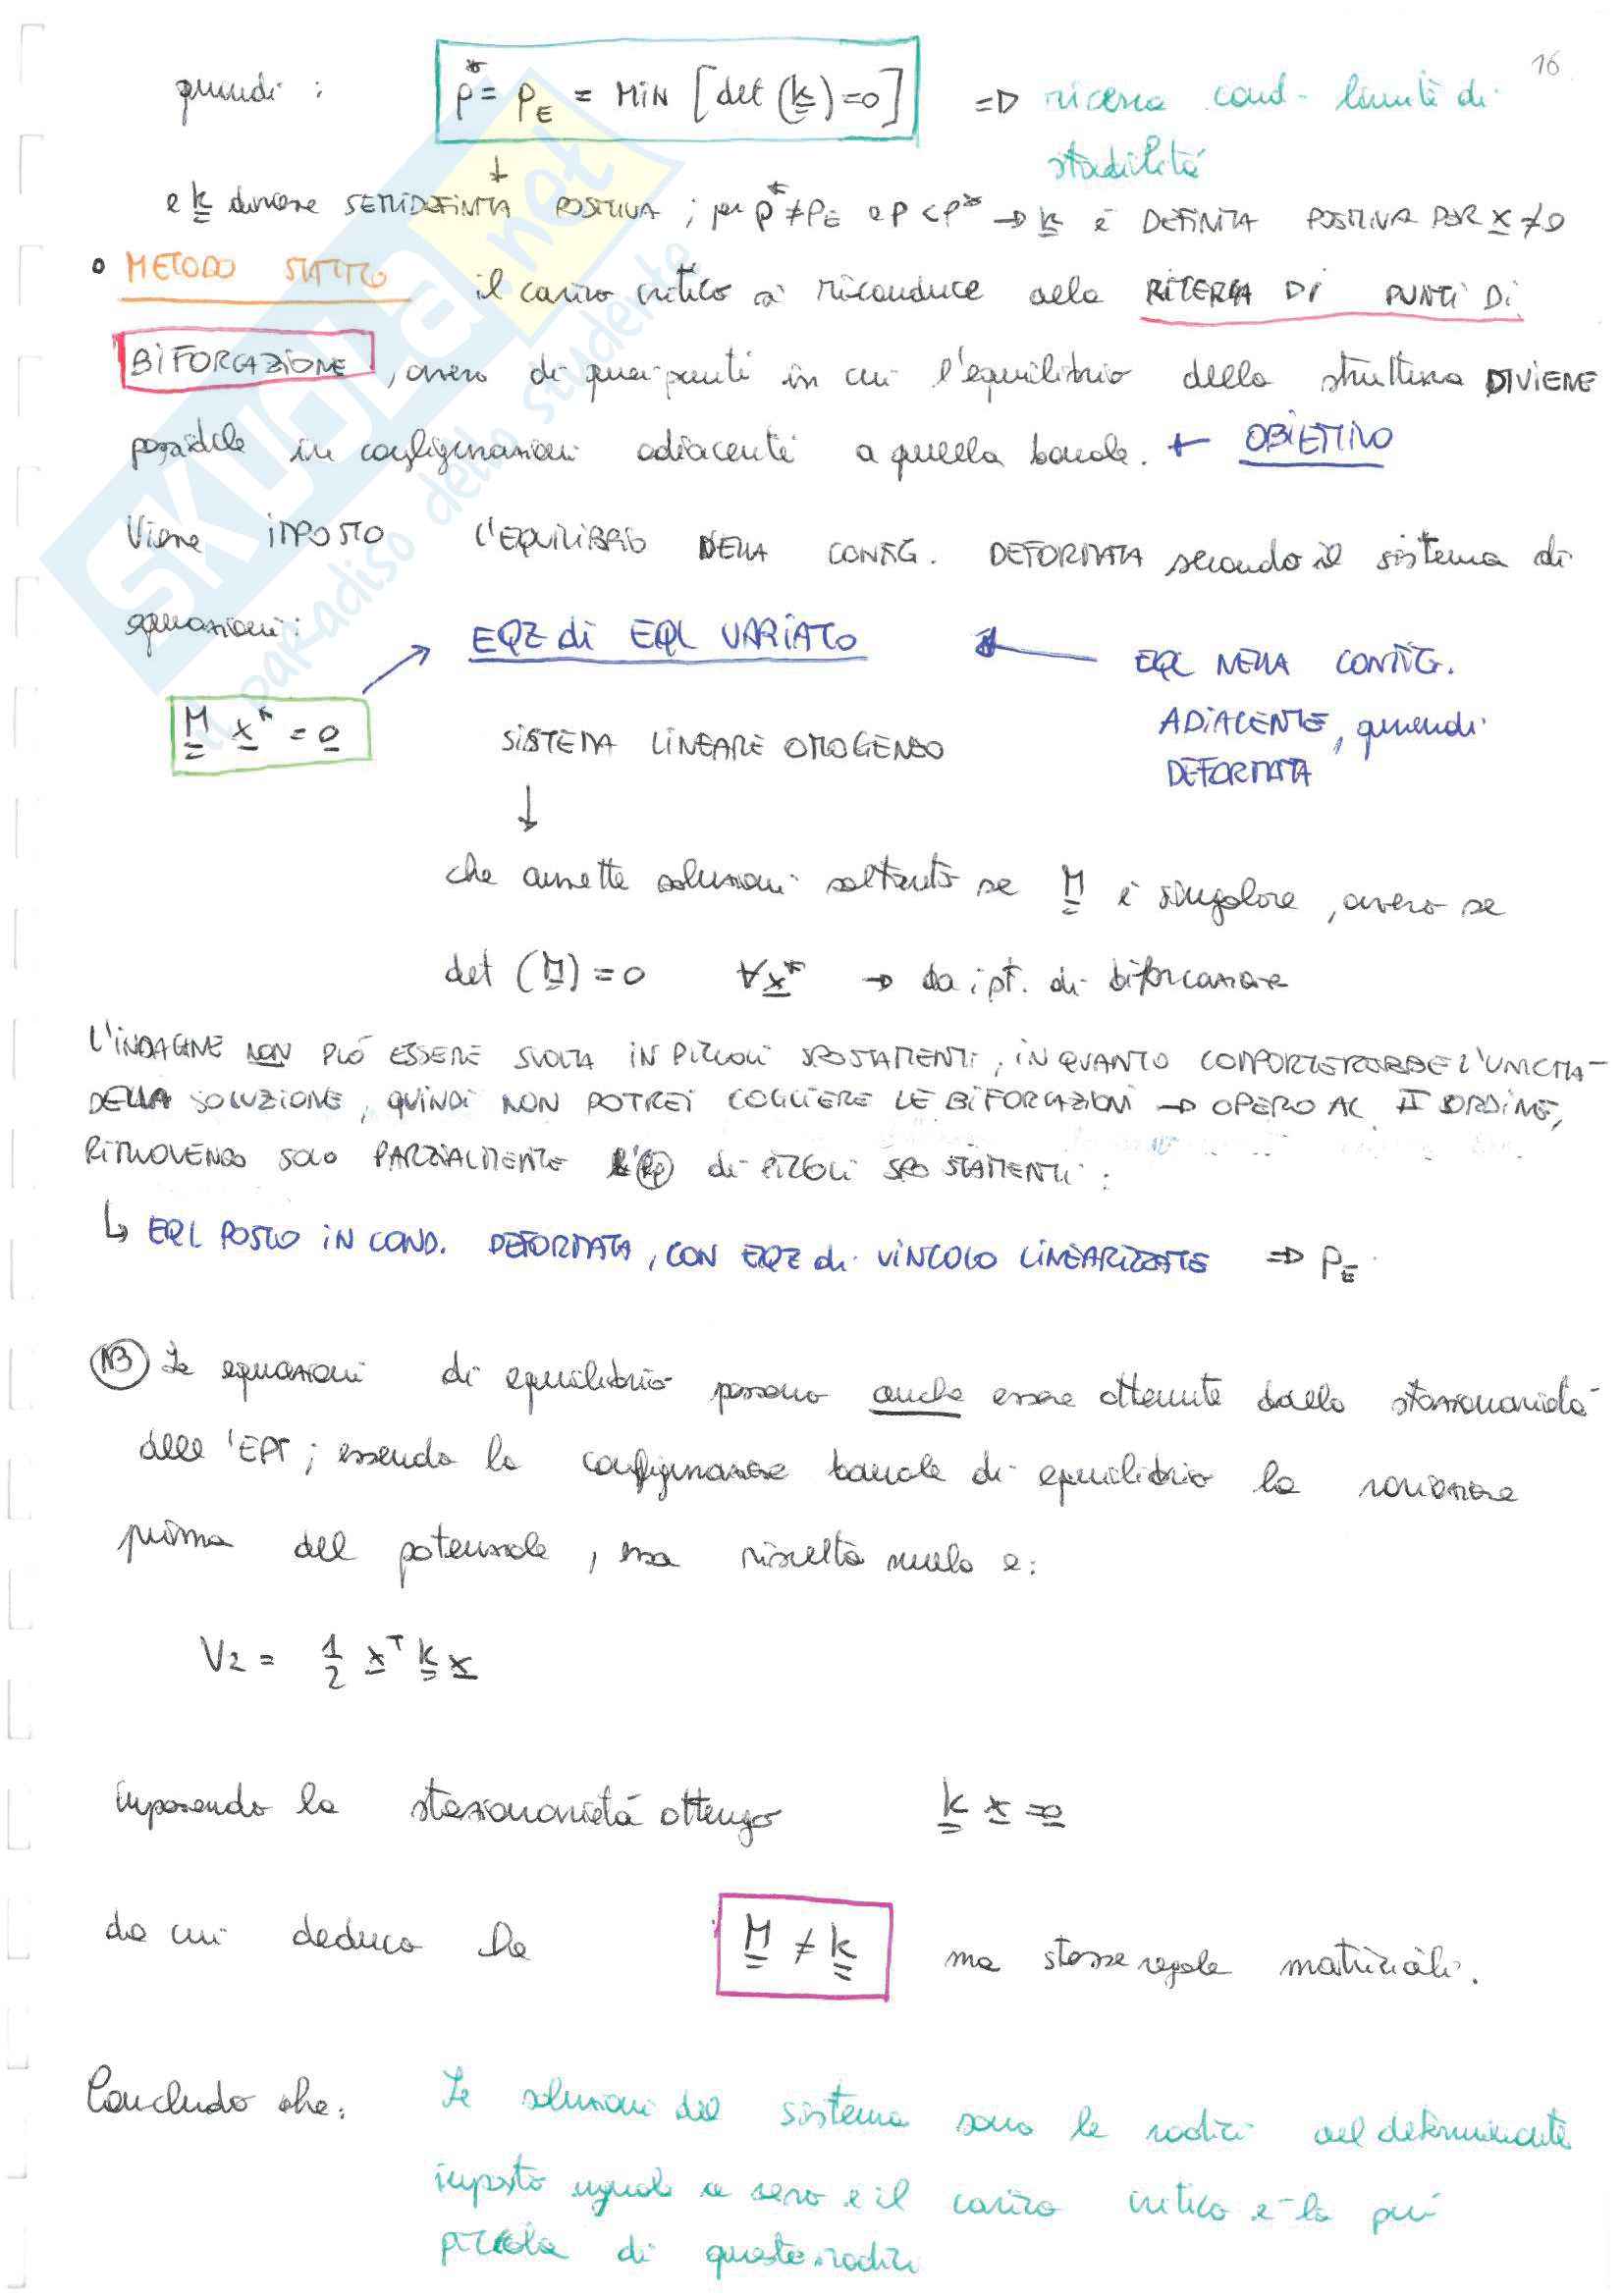 16
quindi : p* = pE = MIN [det (k)=0] => ricerca cond. limite di
stabilità
↓
e k diviene SEMIDEFINITA POSITIVA ; per p* ≠ pE e p < p* → k è DEFINITA POSITIVA PER x ≠ 0
• METODO STATICO il carico critico si riconduce alla RICERCA DI PUNTI DI
BIFORCAZIONE , ovvero di quei punti in cui l'equilibrio della struttura DIVIENE
possibile in configurazioni adiacenti a quella banale. ← OBIETTIVO
Viene IMPOSTO L'EQUILIBRIO DELLA CONFIG. DEFORMATA secondo il sistema di
equazioni: EQZ di EQL VARIATO ← EQL NELLA CONFIG.
ADIACENTE, quindi
DEFORMATA
M x* = 0 SISTEMA LINEARE OMOGENEO
↓
che amette soluzioni soltanto se M è singolare , ovvero se
det (M) = 0 ∀x* → da i pt. di biforcazione
L'INDAGINE NON PUÓ ESSERE SVOLTA IN PICCOLI SPOSTAMENTI, IN QUANTO COMPORTEREBBE L'UNICITA'
DELLA SOLUZIONE, QUINDI NON POTREI COGLIERE LE BIFORCAZIONI → OPERO AL II ORDINE,
RIMUOVENDO SOLO PARZIALMENTE l'Hp di PICCOLI SPOSTAMENTI :
↳ EQL POSTO IN COND. DEFORMATA, CON EQZ di VINCOLO LINEARIZZATE => pE.
NB Le equazioni di equilibrio possono anche essere ottenute dalla stazionarietà
dell'EPT ; essendo la configurazione banale di equilibrio la variazione
prima del potenziale , essa risulta nulla e:
V2 = 1/2 x^T k x
imponendo la stazionarietà ottengo k x = 0
da cui deduco che M ≠ k ma stesse regole matriciali.
Concludo che: Le soluzioni del sistema sono le radici del determinante
imposto uguale a zero e il carico critico è la più
piccola di queste radici
SKUOLA.net
il paradiso dello studente